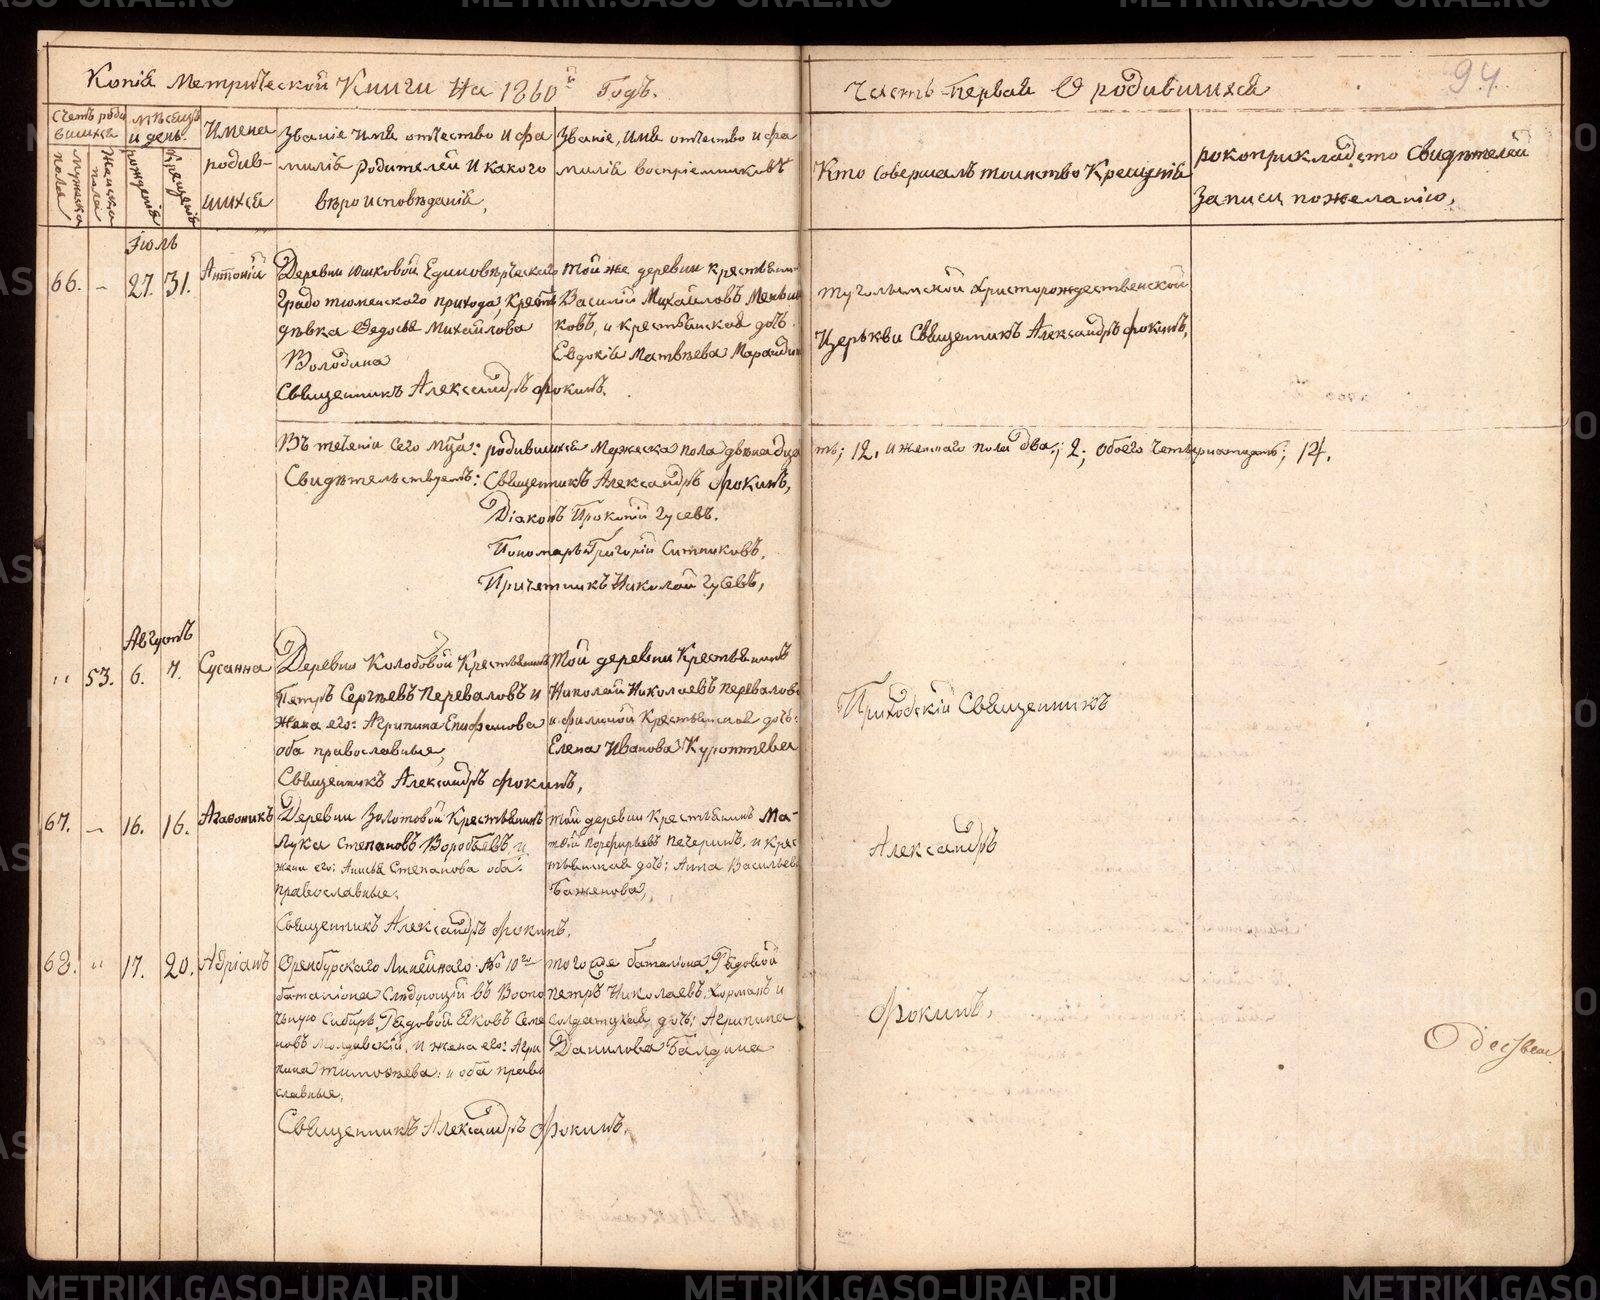 Копія Метрической Книги На 1860й Годъ.
Часть первая О родившихся
94
Счетъ роди
вшихся
мѣсяцъ
и день.
Имена
родив-
шихся
Званіе имя отчество и фа
милія родителей и какого
вѣроисповѣданія,
Званіе, имя отчество и фа
милія воспріемниковъ
Кто совершалъ таинство Крещенія
рокоприкладсто свидѣтелей
записи пожеланію,
мужска
пола
женска
пола
рожденія
крещенія
Іюль
66. – 27. 31. Антоній
Деревни Юшковой Единовѣрческаго
Градо тюменскаго прихода, Крестья
дѣвка Федосья Михайлова
Володина
Священникъ Александръ Фокинъ.
Той же деревни крестьянинъ
Василій Михайловъ Меньши
ковъ, и крестьянская дочь
Евдокія Матвѣева
Тугулымской Христорождественской
Церькви Священникъ Александръ Фокинъ,
Въ теченіи сего мца: родившихся Мужеска пола двѣнадца
ть; 12. и женскаго пола два; 2; обоего четырнатцать; 14.
Свидѣтельствуемъ: Священникъ Александръ Фокинъ,
Діаконъ Прокопій Гусевъ.
Пономарь Григорій Ситниковъ.
Причетникъ Николай Гусевъ,
Августъ
" 53. 6. 7. Сусанна
Деревни Колобовой Крестьянинъ
Петръ Сергѣевъ Переваловъ и
жена его: Агрипина Епифанова
оба православные,
Священникъ Александръ Фокинъ,
Той деревни Крестьянинъ
Николай Николаевъ Перевалов
и Крестьянская дочь:
Елена Иванова
Приходскій Священникъ
67. – 16. 16. Агафоникъ
Деревни Золотовой Крестьянинъ
Лука Степановъ Воробьевъ и
жена его: Анисья Степанова оба:
православные.
Священникъ Александръ Фокинъ.
той деревни Крестьянинъ Ма-
твій Порфирьевъ Печеринъ, и крес
тьянская дочь: Анна Васильева
Баженова,
Александръ
68. " 17. 20. Адріанъ
Оренбурскаго Линейнаго № 10го
баталіона Слѣдующій въ Восто
чную Сибирь, Рядовой Яковъ Семе
новъ Молдавскій, и жена его: Агри
пина Тимофѣева: и оба право
славные,
Священникъ Александръ Фокинъ,
того же баталіона Рядовой
петръ Николаевъ, и
солдатская дочь: Агрипина
Данилова Балдина
Фокинъ,